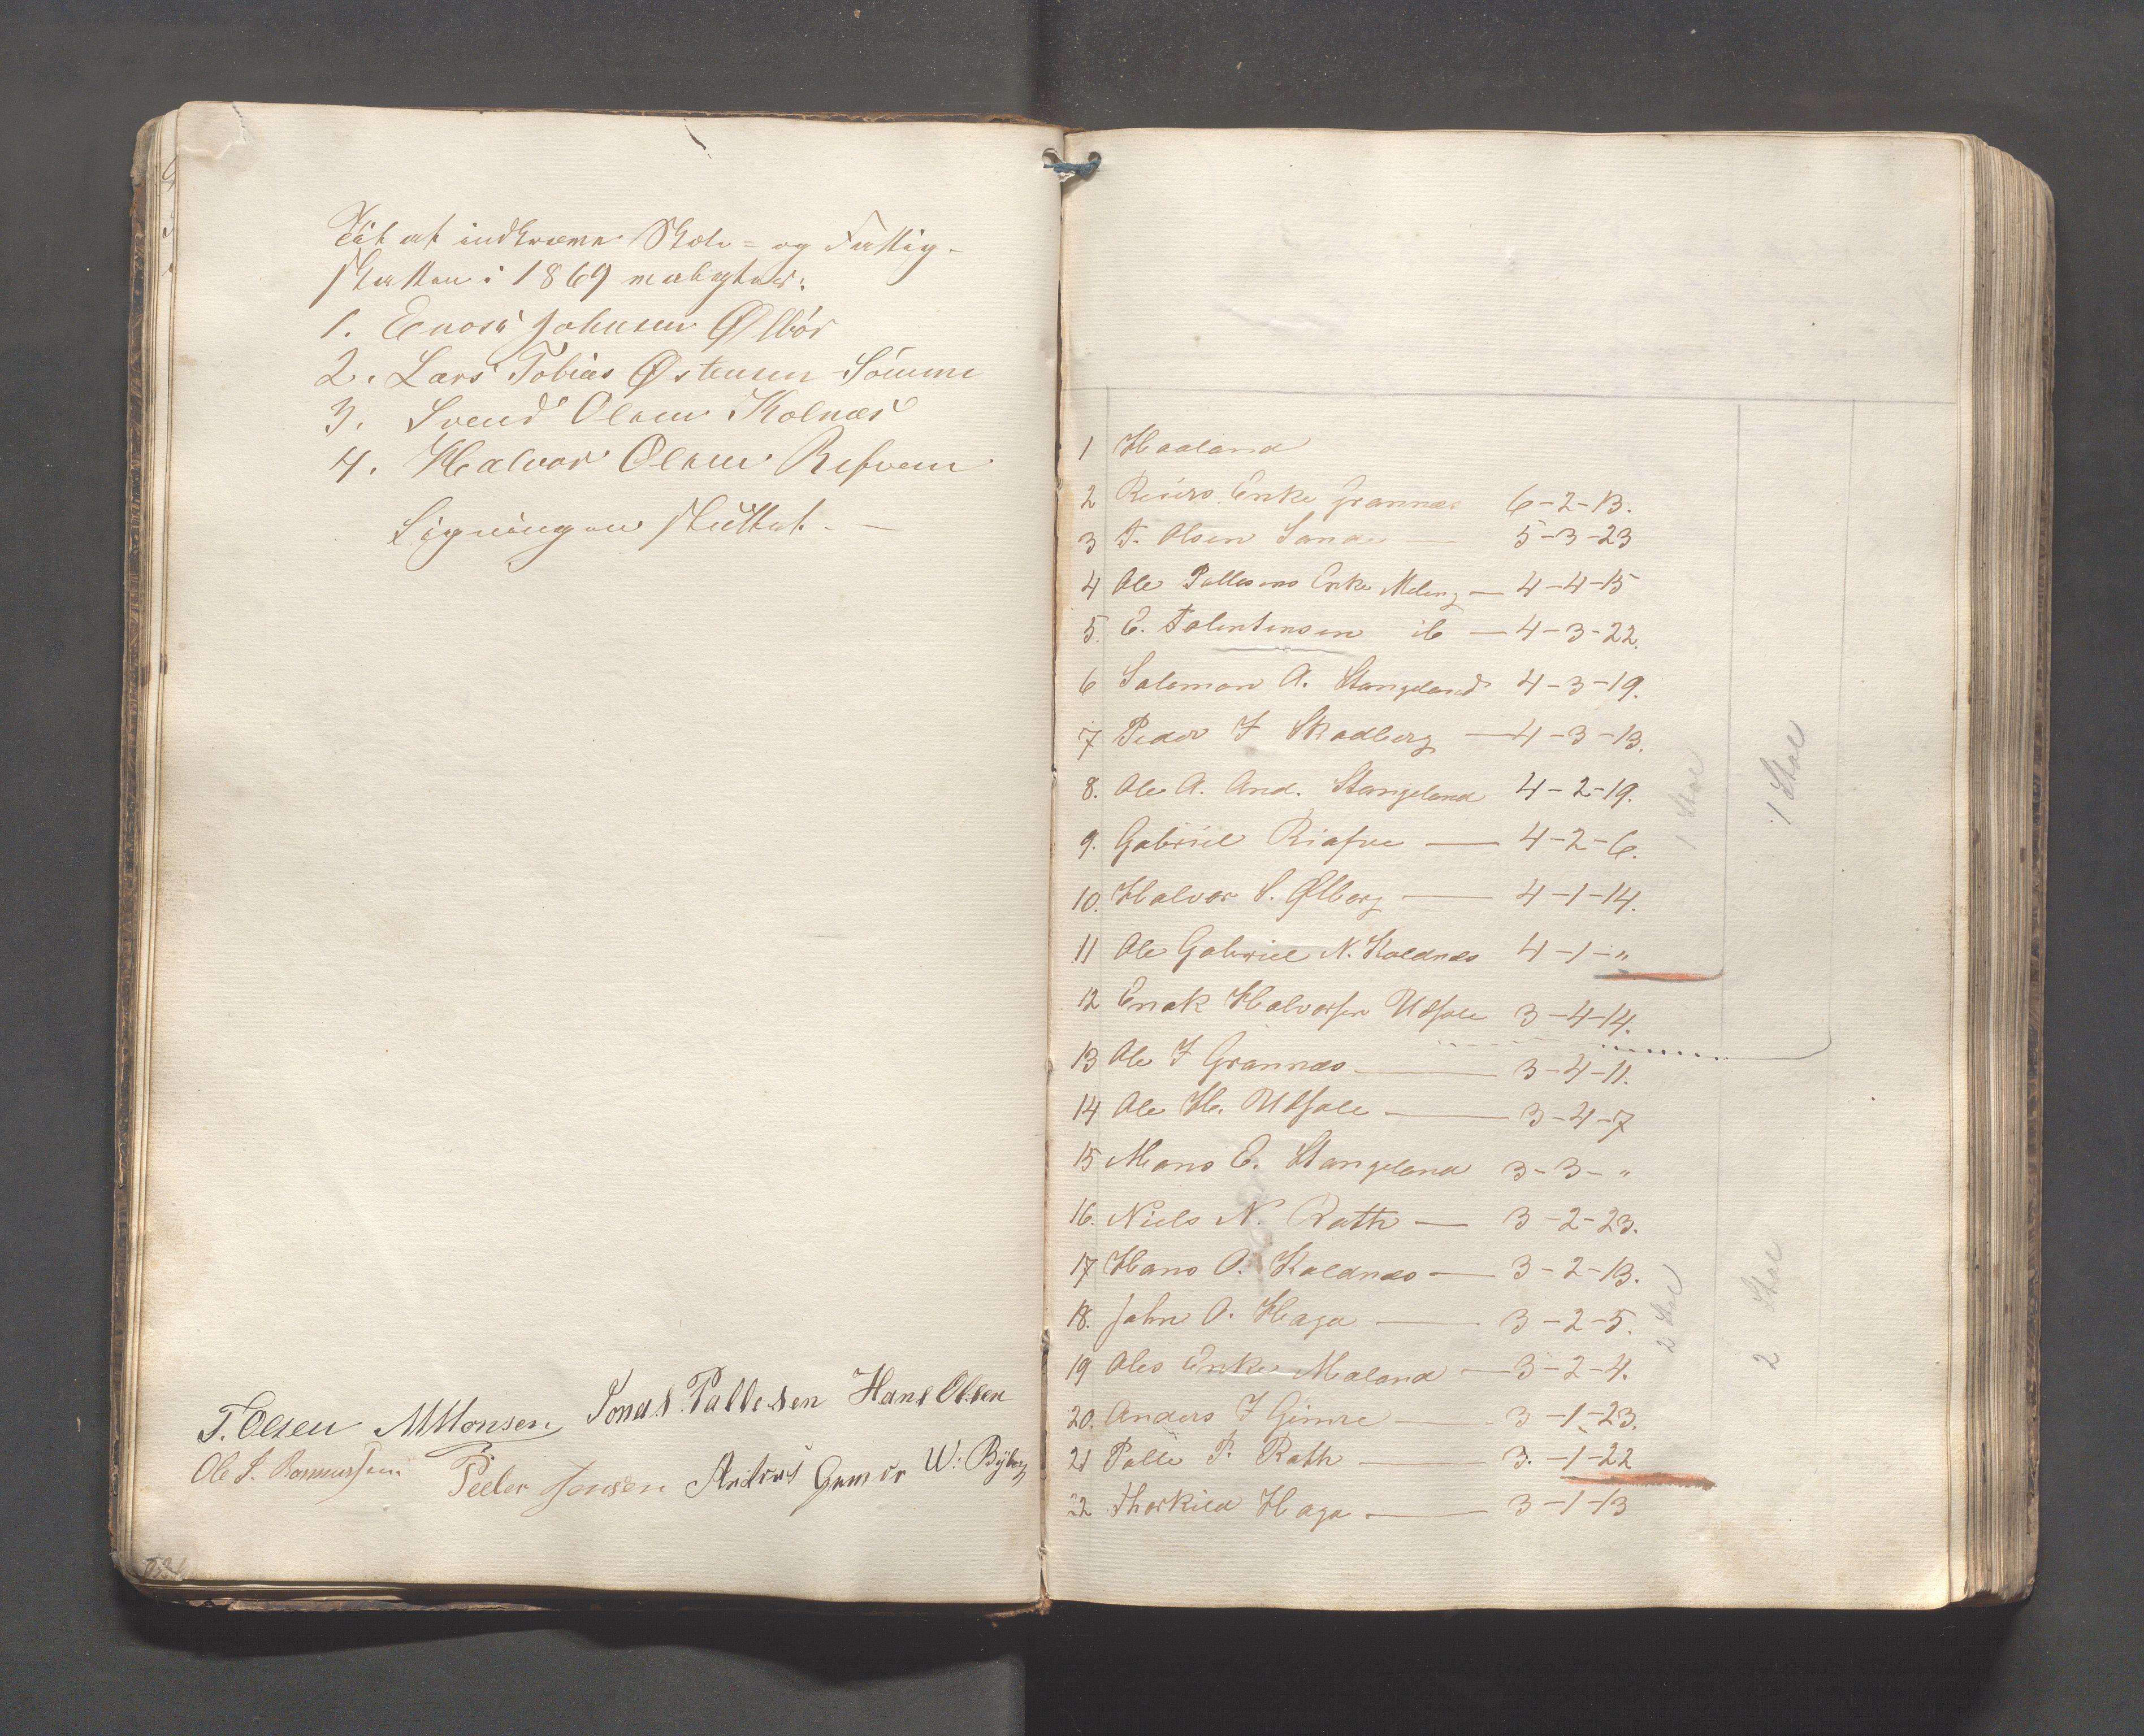 Til at indkræve Skole- og Fattig-
skatten i 1869 
1. Johnsen Ølbör
2. Lars Tobias Østensen Sömme
3. Svend Olsen Kolnæs
4. Halvor Olsen Refvem
Ligningen sluttet. —
T. Olsen M Monsen Jonas Pallesen Hans Olsen
Ole S. Rasmussen. Peder Jonsen Andrus Gimre W: Byberg
1 Haaland
2 Enke Grannes 6-2-13.
3 T. Olsen Sande — 5-3-23
4 Ole Pallesens Enke Meling — 4-4-15
5. E. Tolentinsen ib — 4-3-22.
6 Salomon A. Stangeland 4-3-19.
7 Peder J Skadberg — 4-3-13.
8. Ole A. And. Stangeland 4-2-19.
9. Gabriel — 4-2-6.
10. Halvor S. Ølberg — 4-1-14.
11 Ole Gabriel N. Koldnæs 4-1-"
12 Enok Halvorsen Utsole 3-4-14.
13 Ole J Grannæs — 3-4-11.
14 Ole H. Utsole — 3-4-7
15 Mons E. Stangeland 3-3-"
16. Niels N. Roth — 3-2-23.
17 Hans O. Koldnæs — 3-2-13.
18. John O. Haga — 3-2-5.
19 Oles Enke Maland — 3-2-4.
20. Anders J Gimre — 3-1-23.
21 Palle P. Roth — 3.-1-22
22 Thorkild Haga — 3-1-13
1 Stol
1 Stol
2 Stol
2 Stol